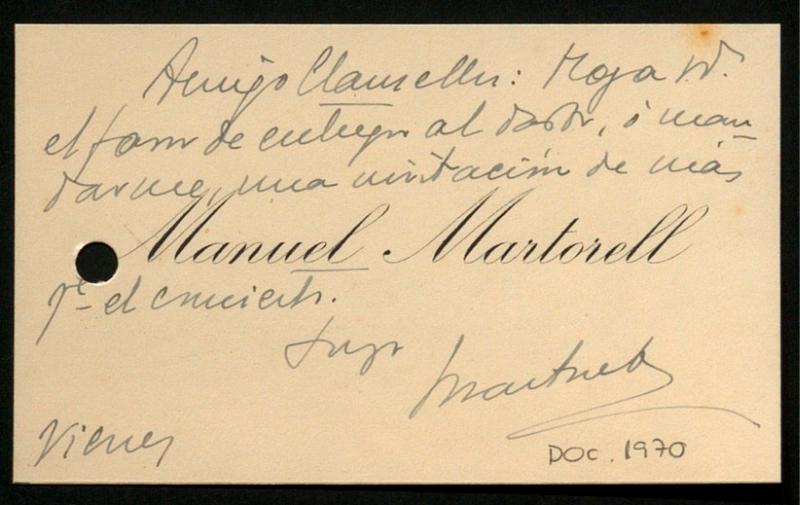 Amigo Clausells: Haga Vd.
el favor de entregar al dador, ó man-
darme, una invitación de más
Manuel Martorell
pª el concierto.
Suyo
Martorell
Viernes
DOC. 1970